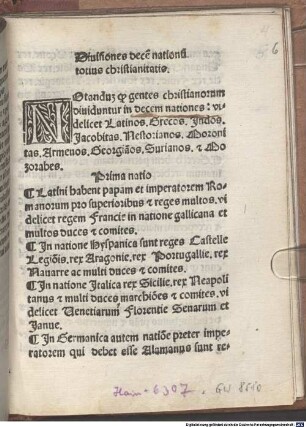 6
Diuisiones decē nationū
totius christianitatis.
NOtanduȝ ꝙ gentes christianorum
diuiduntur in decem nationes: vi
delicet Latinos, Grecos, Indos,
Jacobitas, Nestorianos, Moroni
tas, Armenos, Georgiāos, Surianos, ⁊ Mo
zorabes.
Prima natio
¶ Latini habent papam et imperatorem Ro
manorum pro superioribus ⁊ reges multos, vi
delicet regem Francie in natione gallicana et
multos duces ⁊ comites.
¶ In natione Hyspanica sunt reges Castelle
Legiōis, rex Aragonie, rex Portugallie, rex
Nauarre ac multi duces ⁊ comites.
¶ In natione Italica rex Sicilie, rex Neapoli
tanus ⁊ multi duces marchiōes ⁊ comites, vi
delicet Venetiarum Florentie Senarum et
Janue.
¶ In Germanica autem natiōe preter impe
ratorem qui debet esse Alamanus sunt re
Hain + 6307. GW 8610